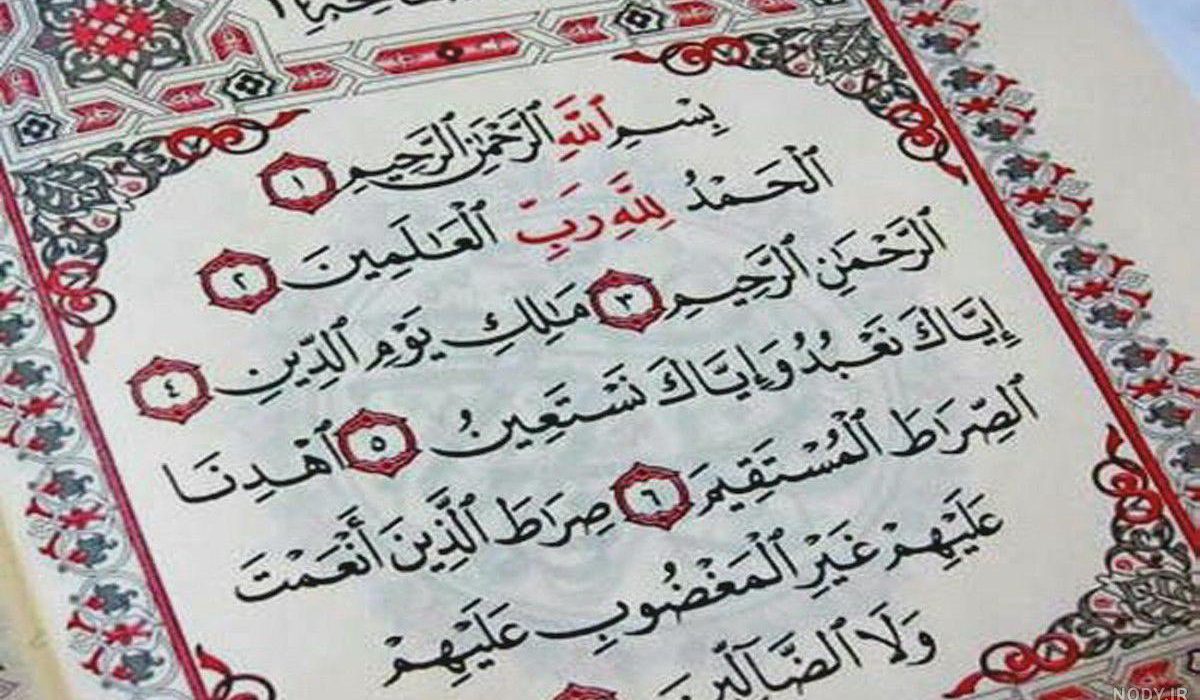 بِسْمِ ٱللَّهِ ٱلرَّحْمَٰنِ ٱلرَّحِيمِ ١
ٱلْحَمْدُ لِلَّهِ رَبِّ ٱلْعَٰلَمِينَ ٢
ٱلرَّحْمَٰنِ ٱلرَّحِيمِ ٣ مَٰلِكِ يَوْمِ ٱلدِّينِ ٤
إِيَّاكَ نَعْبُدُ وَإِيَّاكَ نَسْتَعِينُ ٥ ٱهْدِنَا
ٱلصِّرَٰطَ ٱلْمُسْتَقِيمَ ٦ صِرَٰطَ ٱلَّذِينَ أَنْعَمْتَ
عَلَيْهِمْ غَيْرِ ٱلْمَغْضُوبِ عَلَيْهِمْ
وَلَا ٱلضَّآلِّينَ
NODY.IR